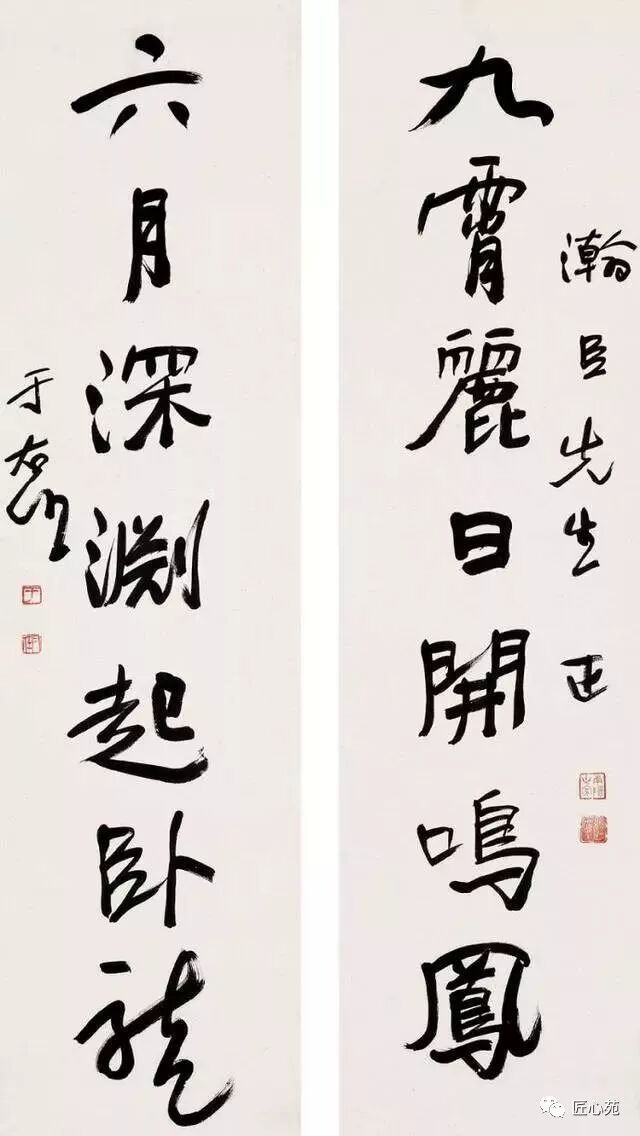 瀚臣先生正
九霄麗日開鳴鳳
六月深淵起卧龍
于右任
匠心苑